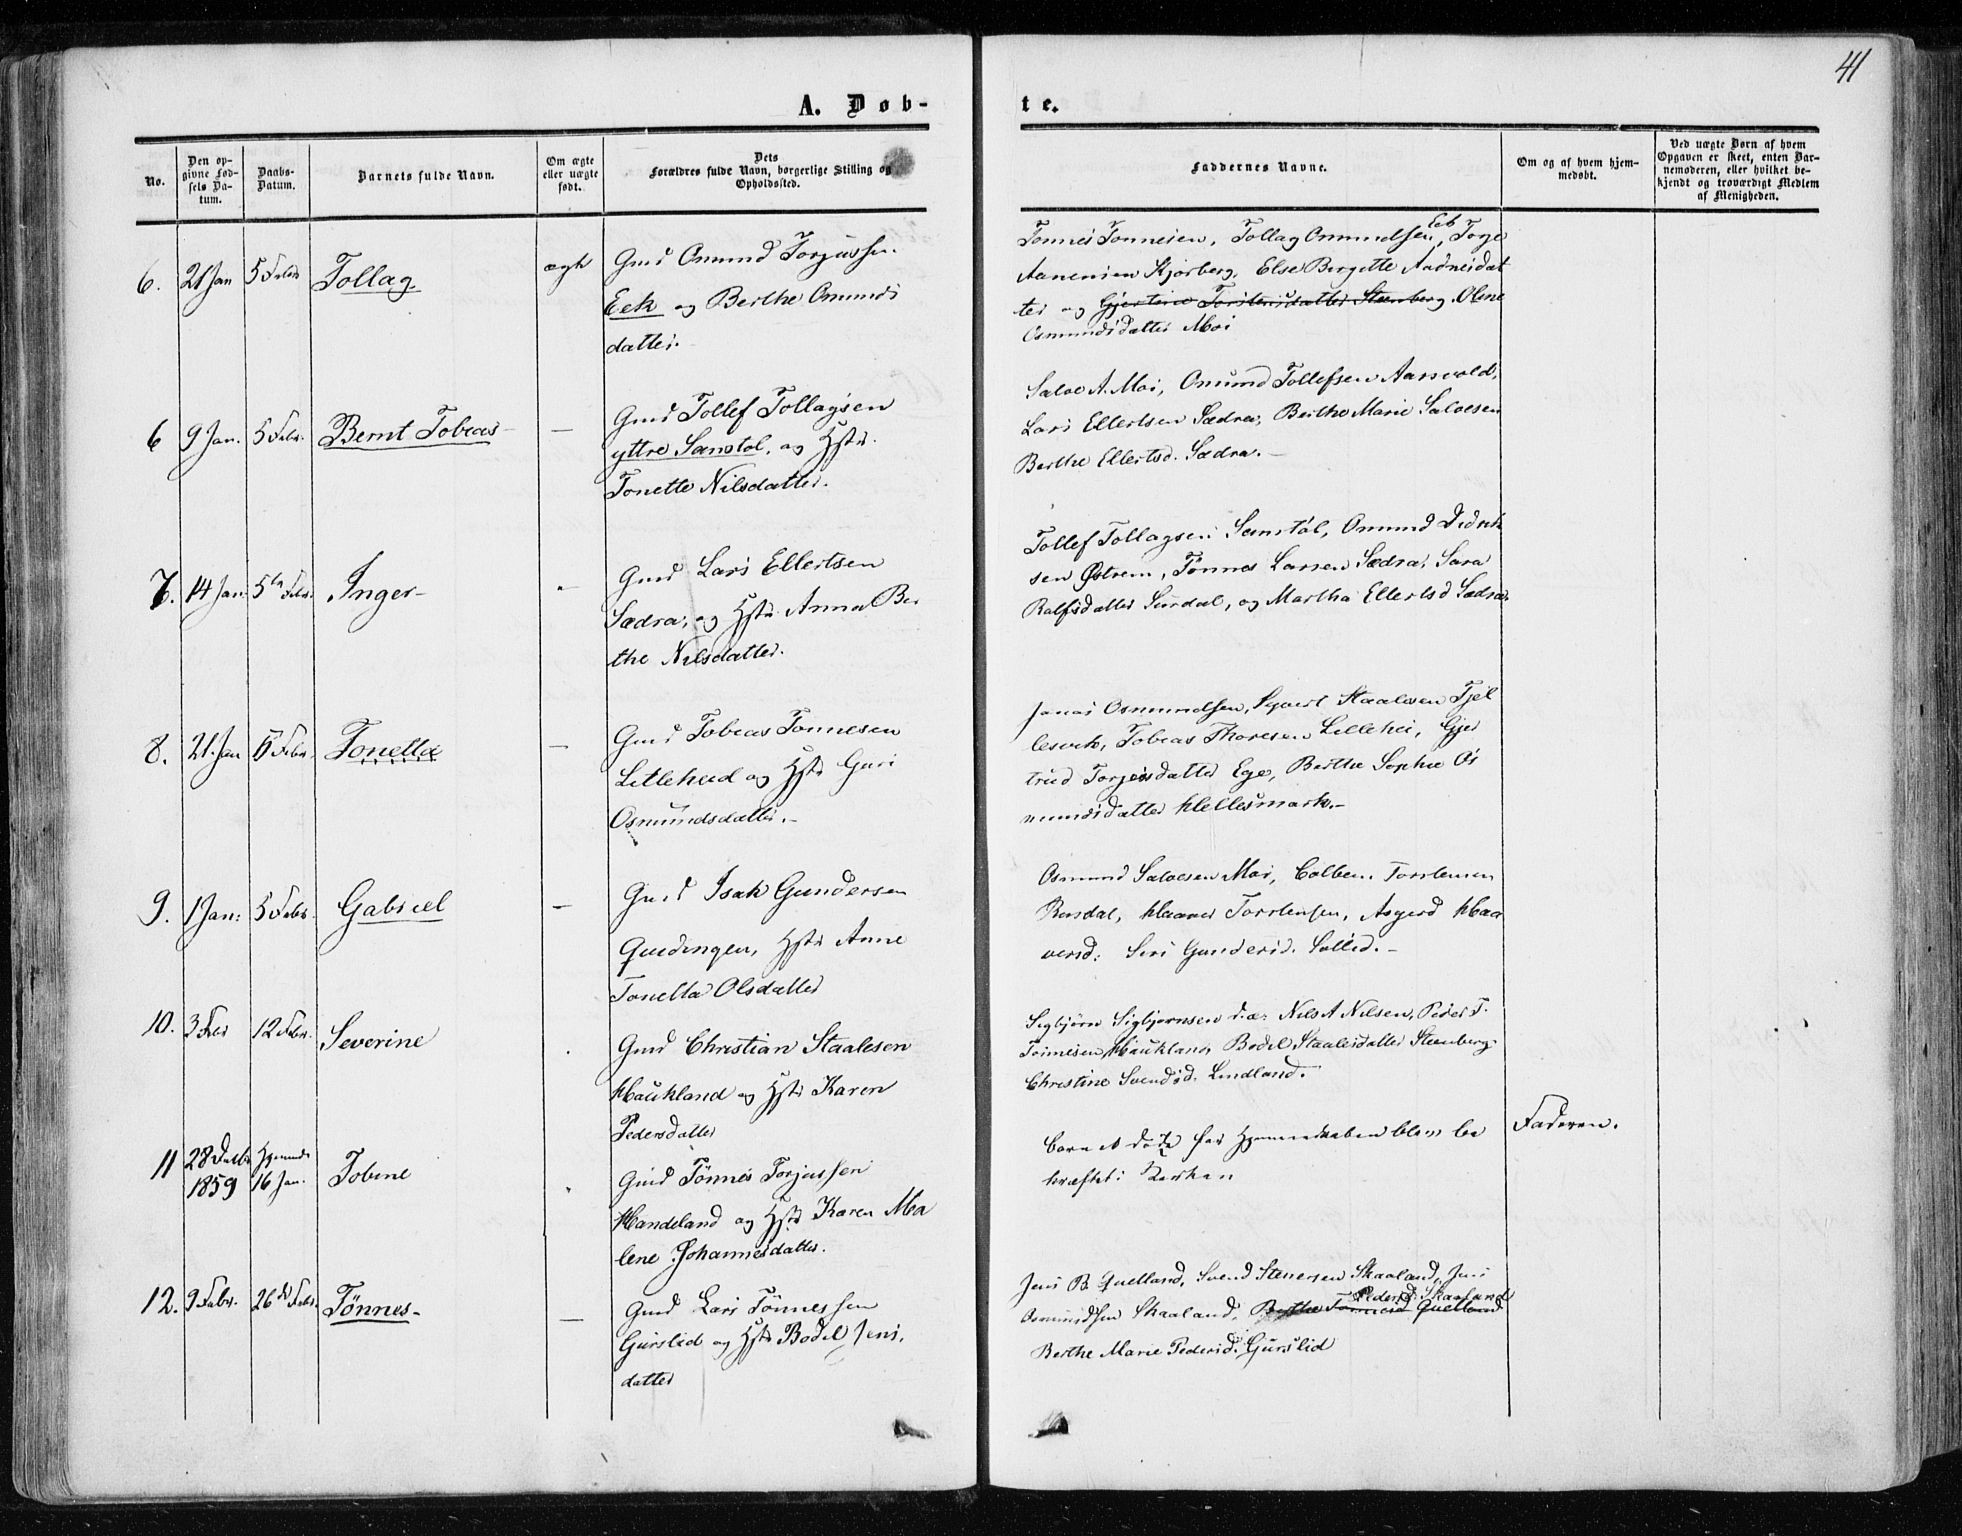 41
A. Døb-
te.
No.
Den op-
givne Fød-
sels Da-
tum.
Daabs-
Datum.
Barnets fulde Navn.
Om ægte
eller uægte
født.
Dets
Forældres fulde Navn, borgerlige Stilling og
Opholdssted.
Faddernes Navne.
Om og af hvem hjem-
medøbt.
Ved uægte Børn af hvem
Opgaven er skeet, enten Bar-
nemoderen, eller hvilket be-
kjendt og troværdigt Medlem
af Menigheden.
6. 21 Jan 5 Febr Tollag ægte
Gmd Omund Torjussen
Eek og Berthe Omunds
datter.
Tønnes Tønnesen, Tollag Omundsen Eek, Torje
Aanensen Kjørberg, Else Bergitte Aadnesdat
ter og Gjertine Torstensdatter Steenberg. Oline
Osmundsdatter Moi
6 9 Jan. 5 Febr. Bernt Tobias —
Gmd Tollef Tollagsen
yttre Sanstøl, og Hstr.
Tonette Nilsdatter.
Saloe A. Moi, Omund Tollefsen Aarrvold,
Lars Ellertsen Sædra, Berthe Marie Saloesen
Berthe Ellertsd. Sædra.
7. 14 Jan. 5te Febr. Inger -
Gmd Lars Ellertsen
Sædra, og Hstr. Anna Ber
the Nilsdatter.
Tollef Tollagsen Sanstøl, Omund Didrik
sen Østrem, Tønnes Larsen Sædra, Sara
Rolfsdatter Surdal, og Martha Ellertsd Sædra.
8. 21. Jan 5 Febr. Tonetta —
Gmd Tobias Tønnesen
Litleheed og Hstr Guri
Osmundsdatter.
Jonas Osmundsen, Sivert Staalesen Fjel
lesvek, Tobias Thoresen Lillehei, Gjer
trud Torjersdatter Ege, Berthe Sophie Os
mundsdatter Hellesmark.
9. 1 Jan: 5 Febr. Gabriel —
Gmd Isak Gundersen
Quedingen, Hstr Anne
Tonetta Olsdatter
Osmund Saloesen Moi, Colben Torstensen
Rusdal, Haaver Torstensen, Asgerd Haa
versd: Siri Gundersd. Sollid.
10. 3 Febr 12 Febr. Severine
Gmd Christian Staalesen
Haukland og Hstr Karen
Pedersdatter
Sigbjørn Sigbjørnsen d.æ. Nils A Nilsen, Peder T.
Tønnesen Haukland, Bodel Staalesdatter Steenberg
Christine Svendsd. Lindland.
11 28 Decbr 1859 Hjemmed 16 Jan. Tobine
Gmd Tønnes Torjussen
Handeland og Hstr Karen Ma
lene Johannesdatter.
Barnet døde før Hjemmedaaben blev be
kræftet i Kirken
Faderen.
12. 9 Febr. 26de Febr. Tønnes — —
Gmd Lars Tønnessen
Gurslid og Hstr Bodel Jens.
datter
Jens B. Quelland, Svend Stenersen Skaaland, Jens
Osmundsen Skaaland, Berthe Tønnesd Quelland Pedersd: Skaaland
Berthe Marie Pedersd. Gurslid